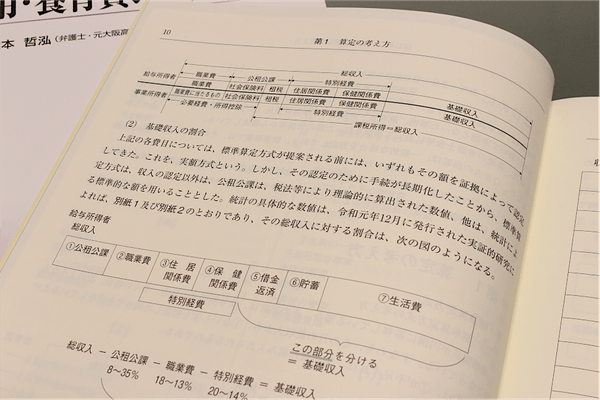 用・養育費
本 哲泓（弁護士・元大阪高
10
第1 算定の考え方
総収入
給与所得者
職業費
公租公課
特別経費
職業費
社会保険料
租税
住居関係費
保健関係費
基礎収入
事業所得者
職業費に当たるもの
社会保険料
租税
住居関係費
保健関係費
基礎収入
必要経費・所得控除
特別経費
課税所得＝総収入
(2) 基礎収入の割合
上記の各費目については，標準算定方式が提案される前には，いずれもその額を証拠によって認定
してきた。これを，実額方式という。しかし，その認定のために手続が長期化したことから，標準算
定方式は，収入の認定以外は，公租公課は，税法等により理論的に算出された数値，他は，統計によ
る標準的な額を用いることとした。統計の具体的な数値は，令和元年12月に発行された実証的研究に
よれば，別紙1及び別紙2のとおりであり，その総収入に対する割合は，次の図のようになる。
給与所得者
総収入
①公租公課
②職業費
③住 居
関係費
④保 健
関係費
⑤借金
返済
⑥貯蓄
⑦生活費
特別経費
この部分を分ける
＝ 基礎収入
総収入 − 公租公課 − 職業費 − 特別経費 ＝ 基礎収入
8～35% 18～13% 20～14%